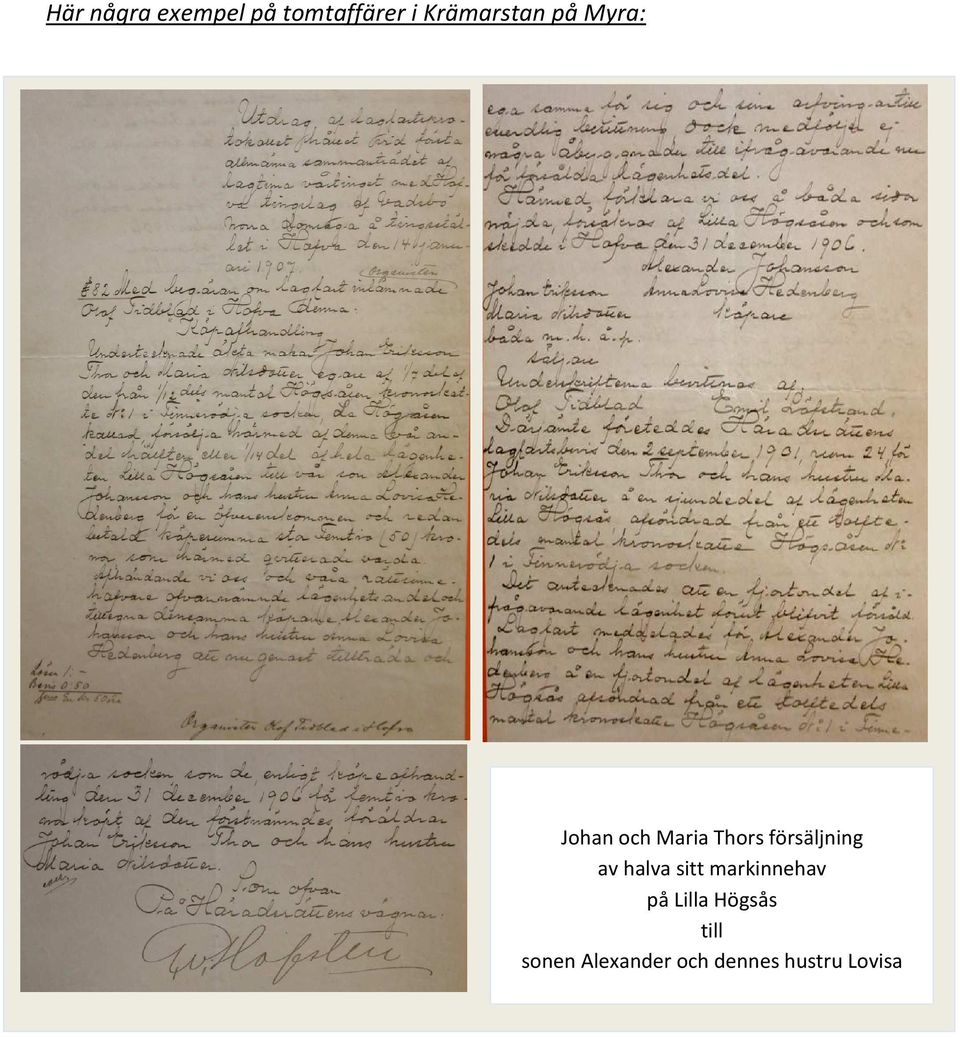 Här några exempel på tomtaffärer i Krämarstan på Myra:
Utdrag af lagfartspro-
tokollet hållet vid första
allmänna sammanträdet af
lagtima vårtinget med Hof-
va tingslag af Wadsbo
Norra Domsaga å tingsstäl-
let i Hofva den 14 janu-
ari 1907.
Organisten
§82 Med begäran om lagfart inlämnade
Olof Tidblad i Hofva denna:
"Köpafhandling
Undertecknade äkta makar Johan Eriksson
Thor och Maria Nilsdotter egare af 1/7 del af
den från 1/12 dels mantal Högsåsen kronoskat-
te No 1 i Finnerödja socken, Lilla Högsåsen
kallad, försälja härmed af denna vår an-
del hälften eller 1/14 del af hela lägenhe-
ten Lilla Högsåsen till vår son Alexander
Johansson och hans hustru Anna Lovisa He-
denberg för en öfverenskommen och redan
betald köpesumma stor Femtio (50) kro-
nor som härmed qvitterade varda.
Afhändande vi oss och våra rättsinne-
hafvare ofvannämnde lägenhetsandel och
tillegna densamma köparne Alexander Jo-
hansson och hans hustru Anna Lovisa
Hedenberg att nu genast tillträda och
Lösen 1:
Bevs 0:50
Organisten Olof Tidblad i Hofva
ega samma för sig och sina arfvingar till
everdlig besittning, dock medföljer ej
några åbyggnader till ifrågavarande nu
för försålda lägenhetsdel.
Härmed förklara vi oss å båda sidor
nöjda, försäkras af Lilla Högsåsen och som
skedde i Hofva den 31 december 1906.
Alexander Johansson
Johan Eriksson Anna Lovisa Hedenberg
Maria Nilsdotter Köpare
båda m. h. å. p.
Säljare
Underskrifterna bevittnas af:
Olof Tidblad Emil Löfstrand.
Därjämte företeddes Häradsrättens
lagfartsbevis den 2 september 1901, num 24 för
Johan Eriksson Thor och hans hustru Ma-
ria Nilsdotter å en sjundedel af lägenheten
Lilla Högsås, afsöndrad från ett tolfte-
dels mantal kronoskatte Högsåsen No
1 i Finnerödja socken.
Det antecknades att en fjortondel af i-
frågavarande lägenhet förut blifvit försåld.
Lagfart meddelades för Alexander Jo-
hansson och hans hustru Anna Lovisa He-
denberg å en fjortondel af lägenheten Lilla
Högsås afsöndrad från ett tolftedels
mantal kronoskatte Högsåsen No 1 i Finne-
rödja socken, som de, enligt köpeafhand-
ling den 31 december 1906 för femtio kro-
nor köpt af den förstnämndes föräldrar
Johan Eriksson Thor och hans hustru
Maria Nilsdotter.
Som ofvan
På Häradsrättens vägnar:
Hofsten
Johan och Maria Thors försäljning
av halva sitt markinnehav
på Lilla Högsås
till
sonen Alexander och dennes hustru Lovisa